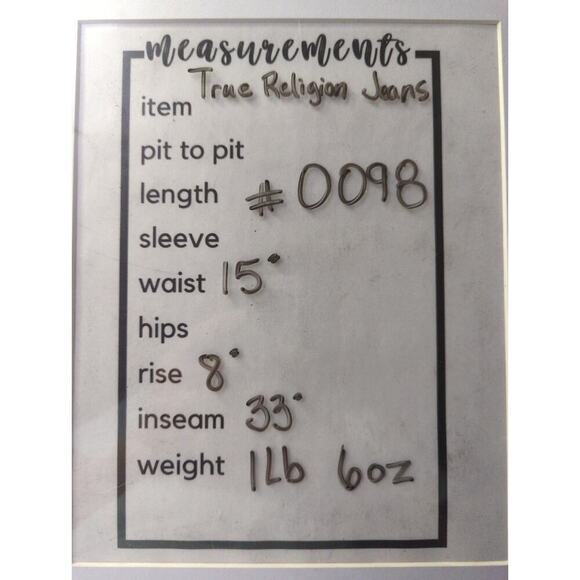 measurements
item True Religion Jeans
pit to pit
length # 0098
sleeve
waist 15"
hips
rise 8"
inseam 33"
weight 1Lb 6oz